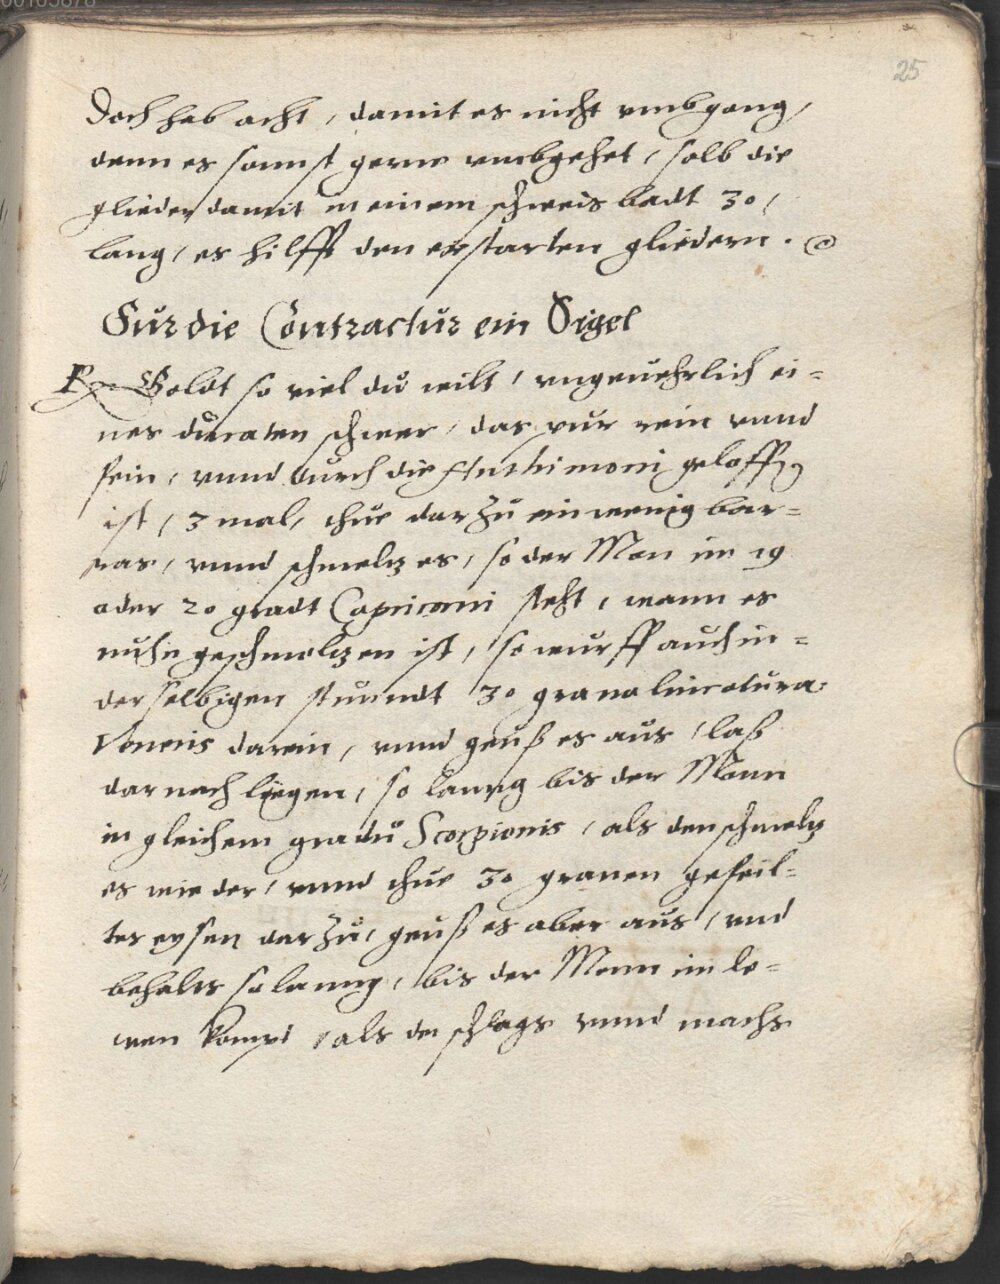 25
Doch hab acht, damit es nicht vmbgang,
denn es sonnst gerne vmbgehet, salb die
glieder damit in einem schweis badt 30,
lang, es hilfft den erstarten gliedern.
Fur die Contractur ein Sigel
Rx Goldt so viel du wilt, vngeuehrlich ei=
nes ducaten schwer, das pur rein vnnd
fein, vnnd durch die Anthimoni geloffen
ist, 3 mal, thue darzu ein wenig bor=
ras, vnnd schmeltz es, so der Mon im 19
oder 20 gradt Capricorni steht, wann es
nuhn geschmoltzen ist, so wurff auch in=
derselbigen stunndt 30 grana limatura
Veneris darein, vnnd geuß es aus, laß
darnach liegen, so lanng bis der Monn
in gleichem gradu Scorpionis, als den schmeltz
es wieder, vnnd thue 30 granen gefeil=
tes eysen darzu, geuß es aber aus, vnd
behalts so lanng, bis der Monn im lo=
wen kompt, als den schlags vnnd machs